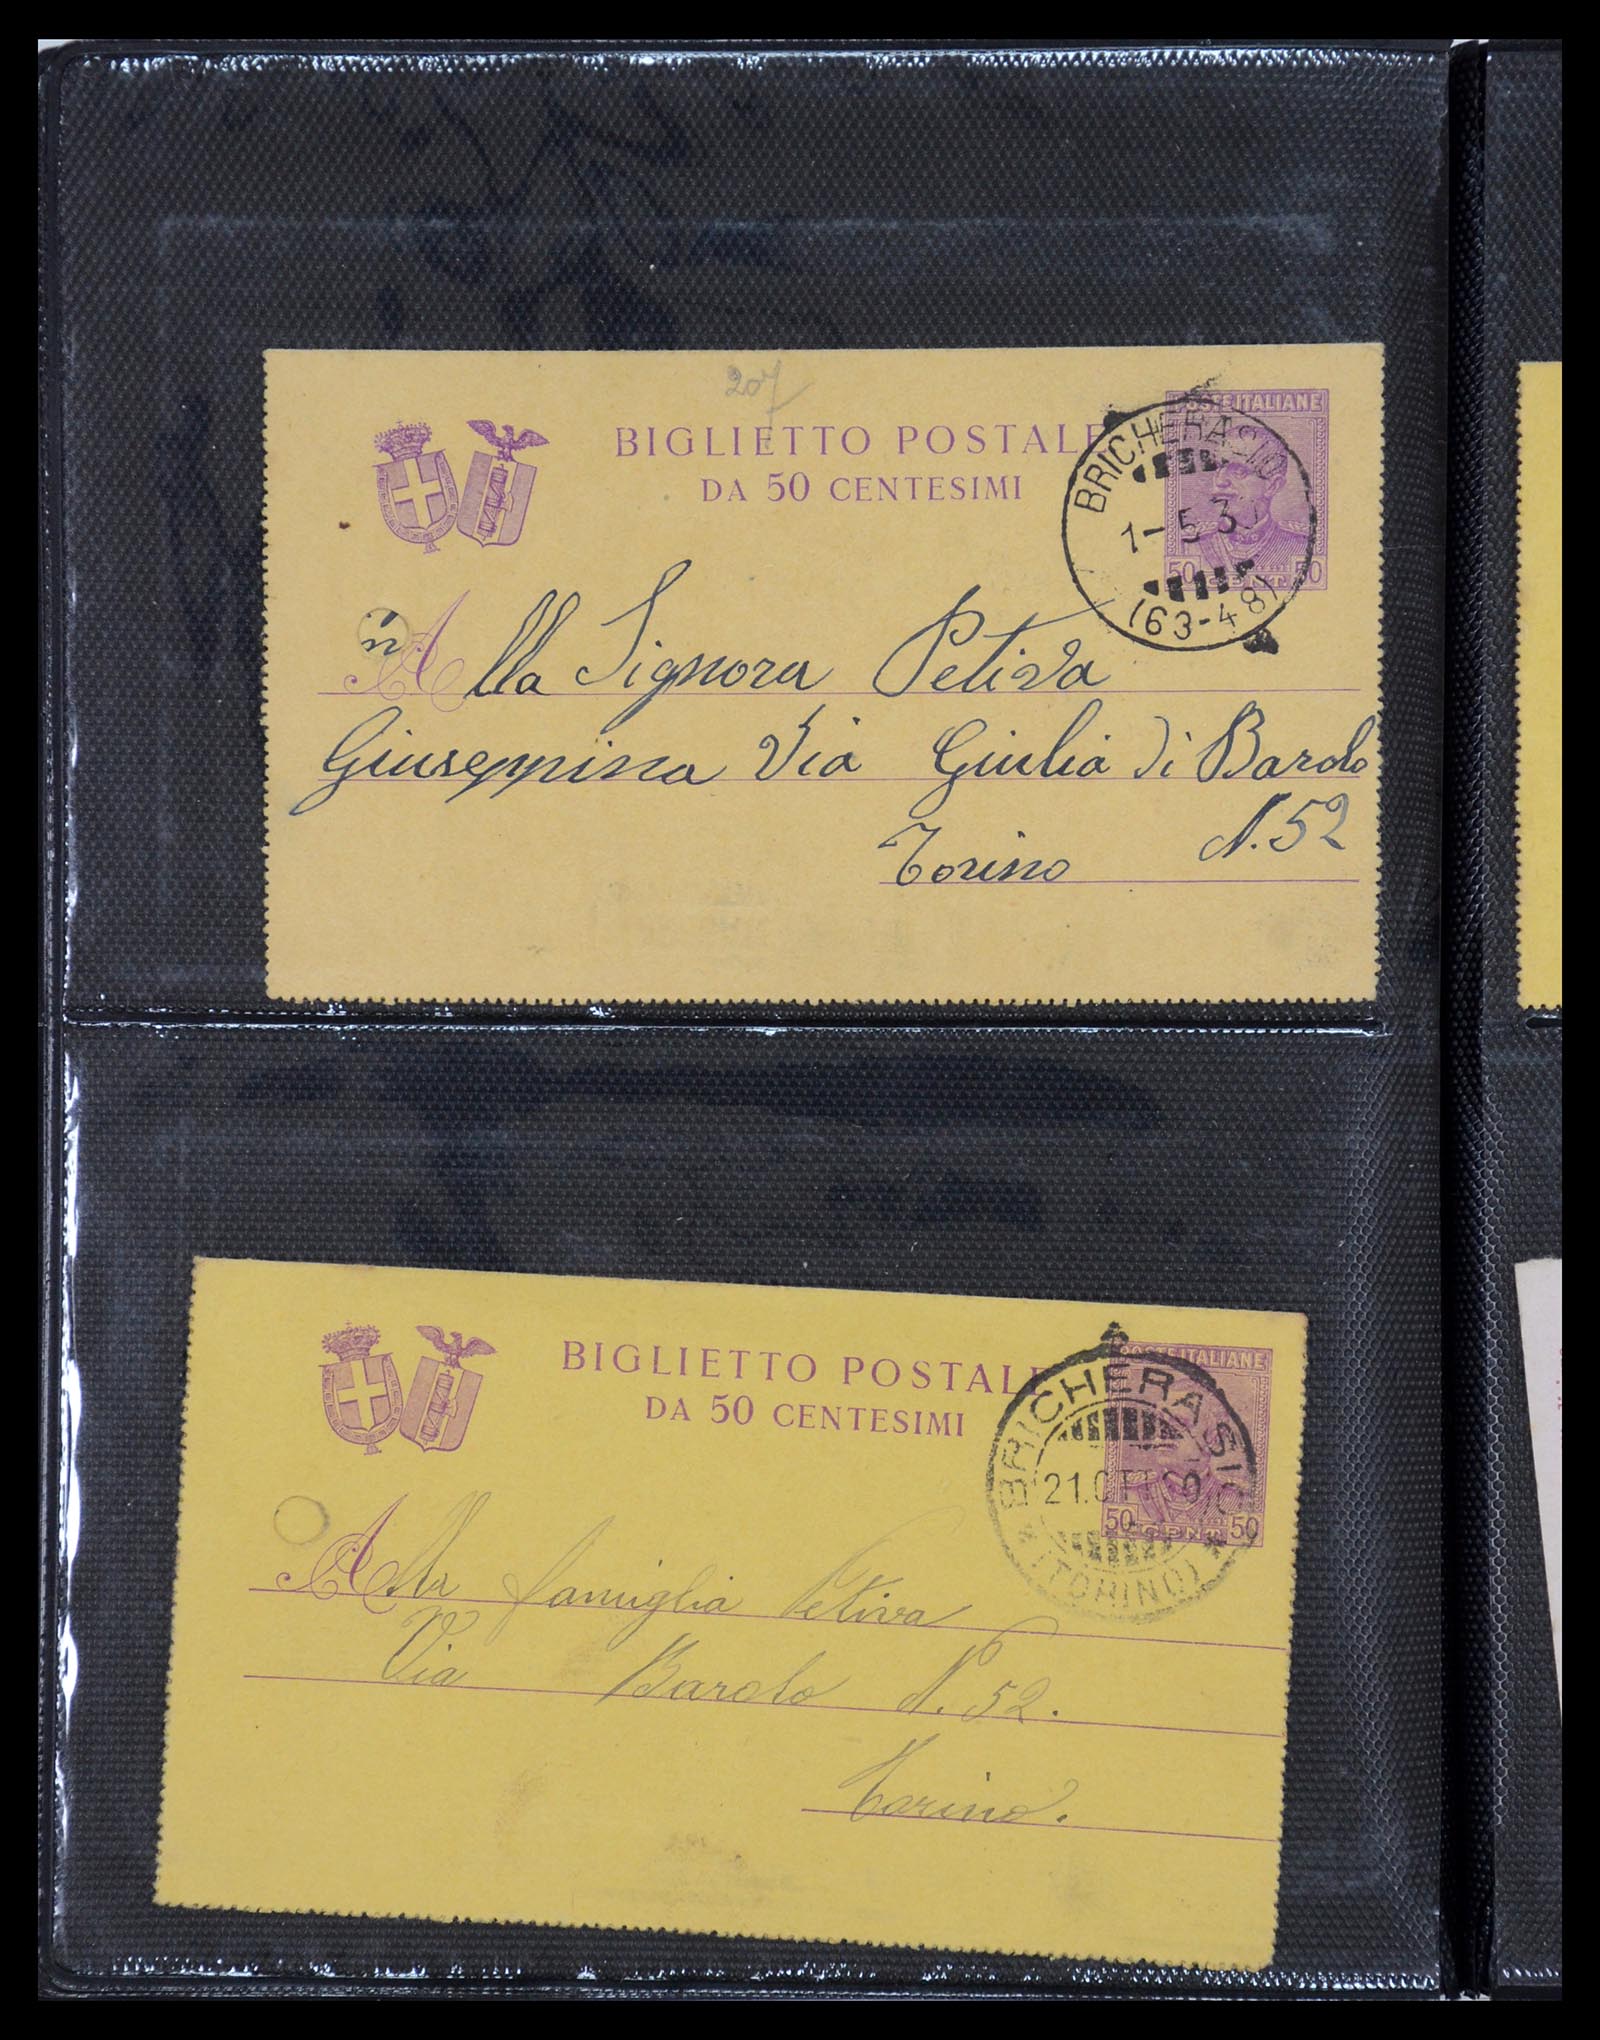 207
BIGLIETTO POSTALE
DA 50 CENTESIMI
POSTE ITALIANE
BRICHERASIO
1-5 3
(63-48)
50 CENT. 50
Alla Signora Petiva
Giuseppina Via Giulia di Barolo
N. 52
Torino
BIGLIETTO POSTALE
DA 50 CENTESIMI
POSTE ITALIANE
BRICHERASIO
21.OTT
* (TORINO) *
50 CENT 50
Alla famiglia Petiva
Via Barolo N. 52.
Torino.